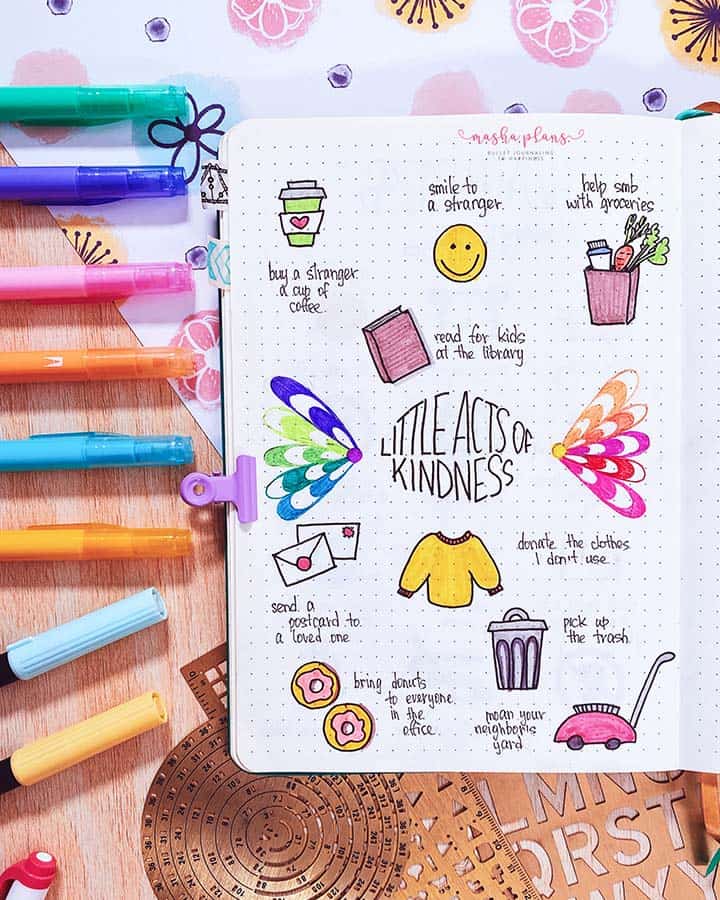 masha.plans
BULLET JOURNALING
TO HAPPINESS
smile to
a stranger
help smb
with groceries
buy a stranger
a cup of
coffee
read for kids
at the library
LITTLE ACTS OF
KINDNESS
donate the clothes
I don't use
send a
postcard to
a loved one
pick up
the trash
bring donuts
to everyone
in the
office
moan your
neighbor's
yard
LMNO
QRST